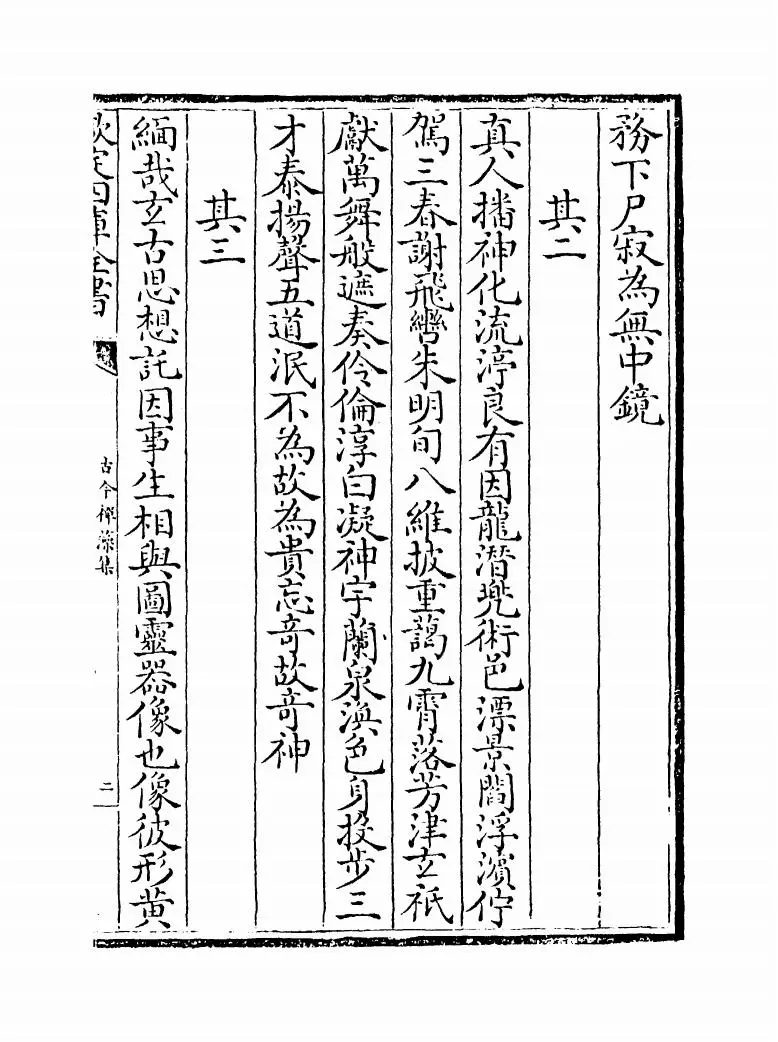 務下尸寂為無中鏡
其二
真人播神化流渟良有因龍潛兜術邑漂景閻浮濱佇
駕三春謝飛轡朱明旬八維披重藹九霄落芳津玄祇
獻萬舞般遮奏伶倫淳白凝神宇蘭泉渙色身投步三
才泰揚聲五道泯不為故為貴忘奇故奇神
其三
緬哉玄古思想託因事生相與圖靈器像也像彼形黄
欽定四庫全書
古今禪藻集
二